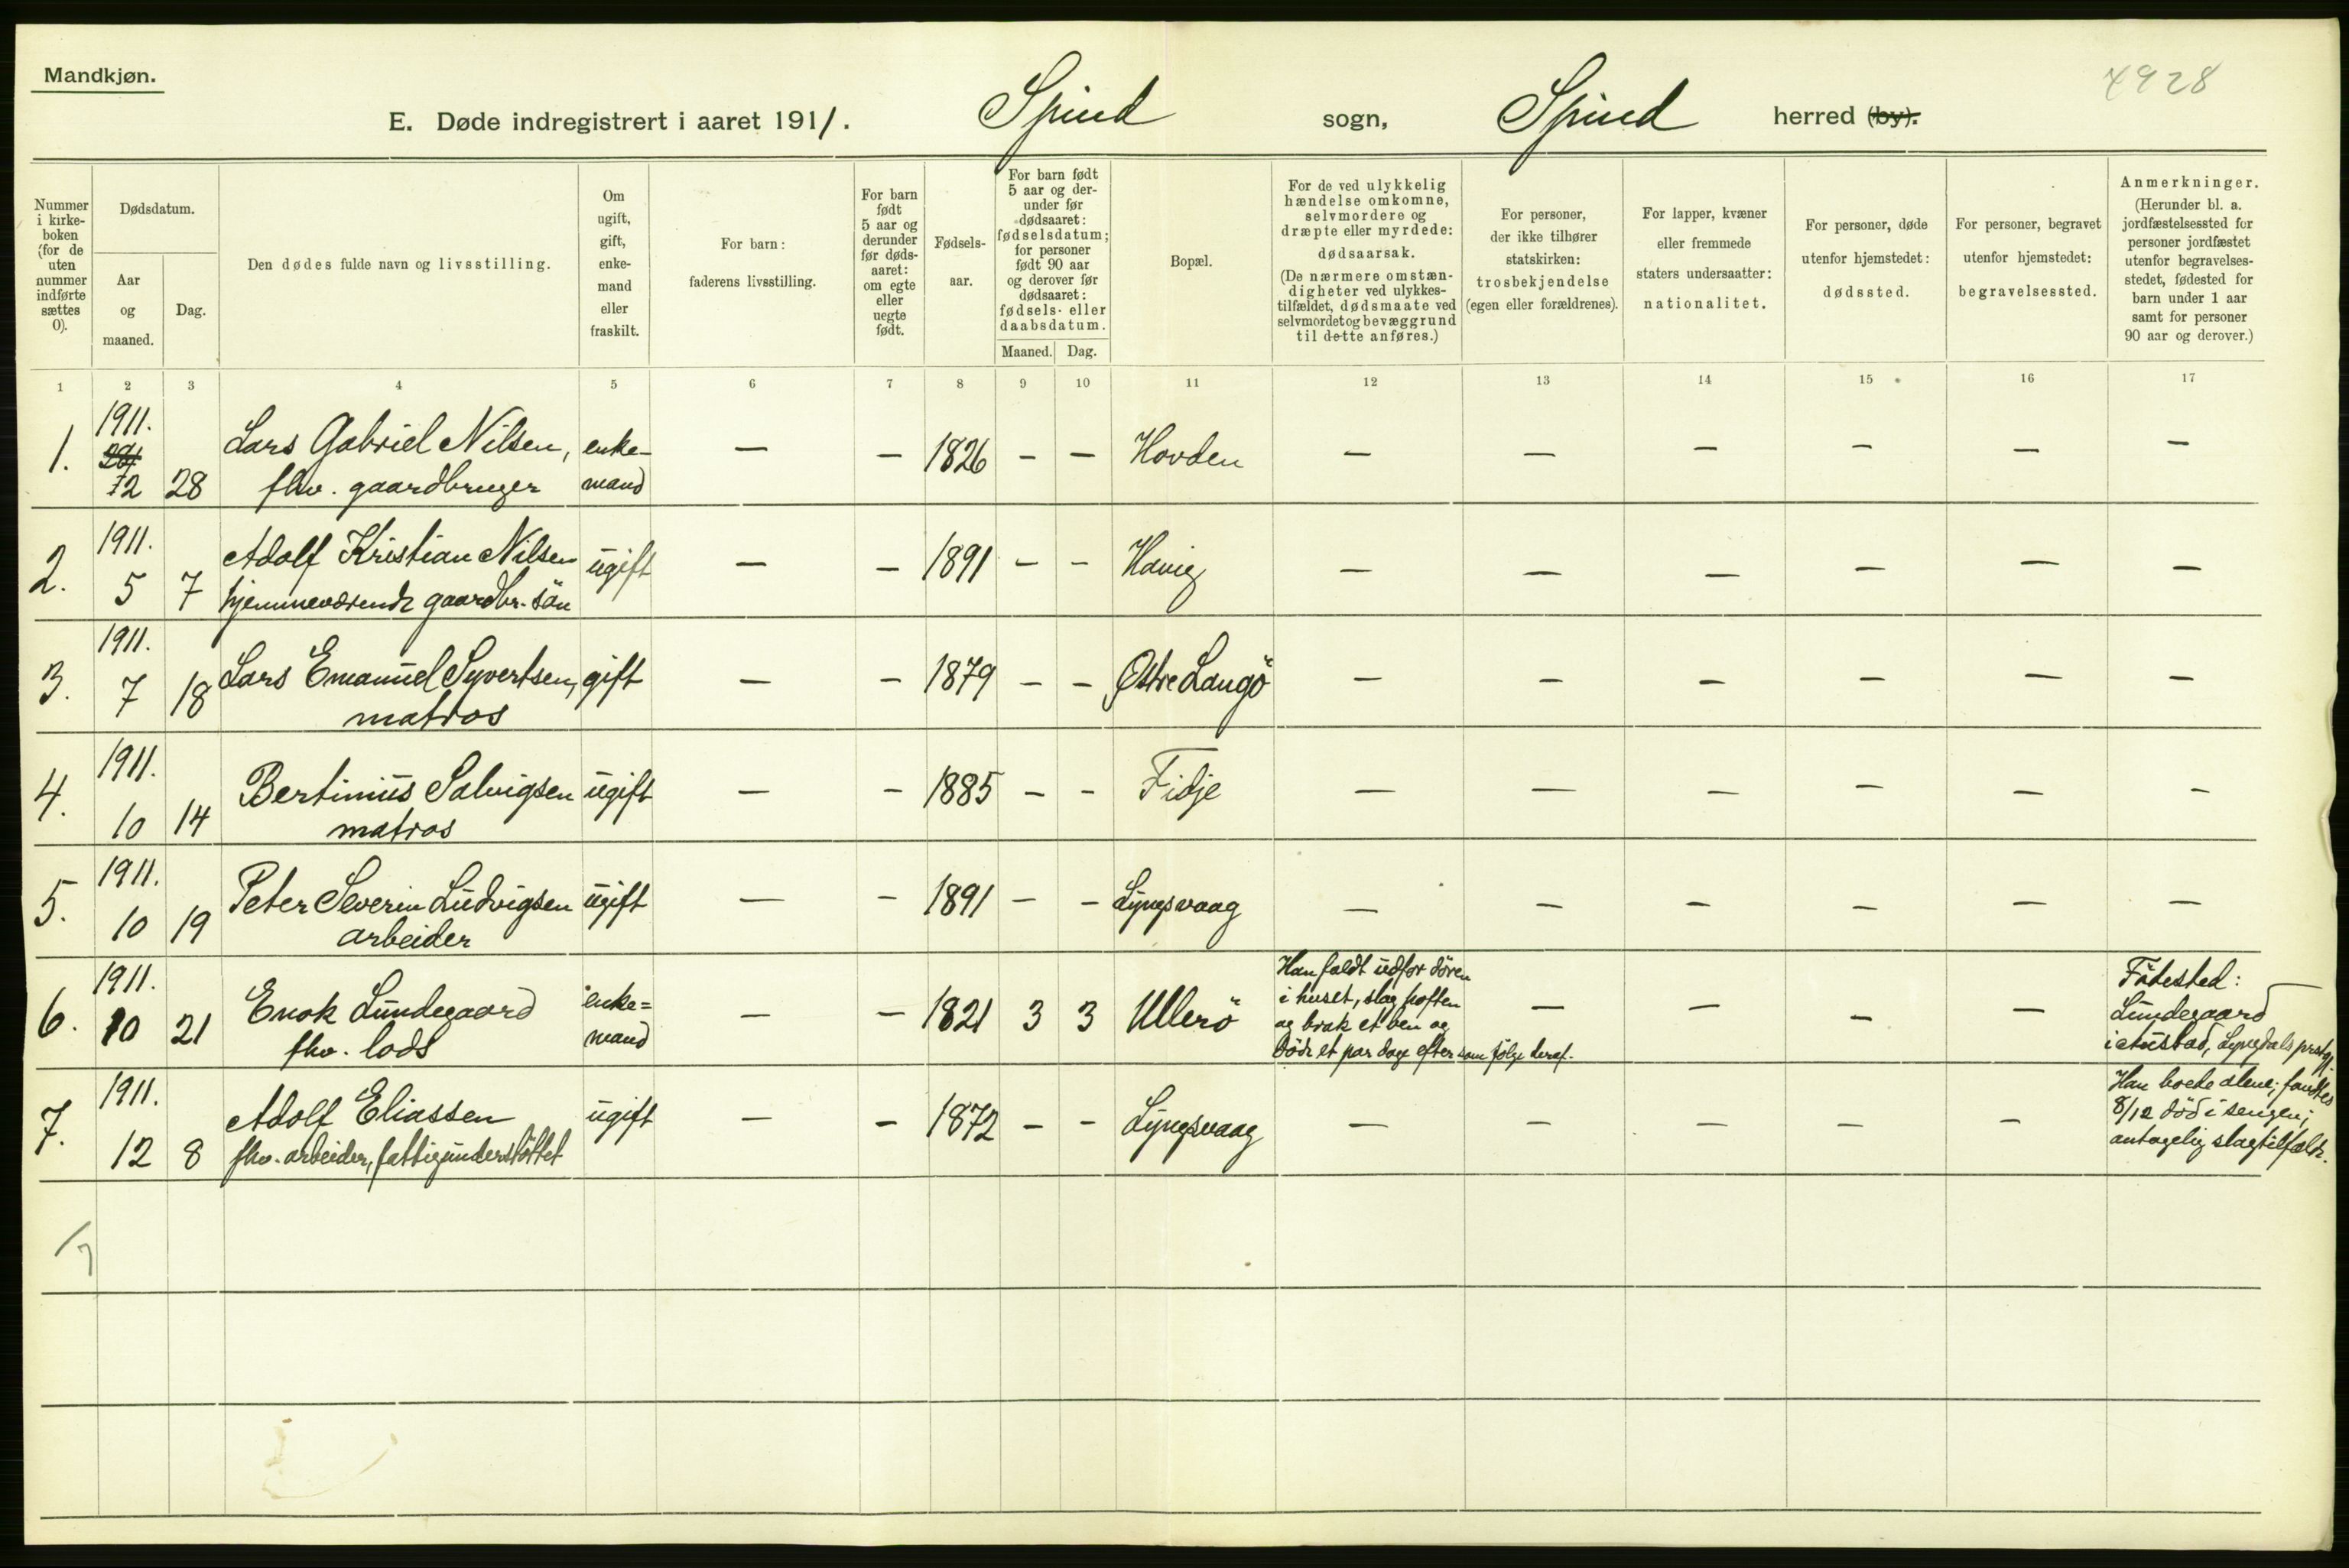 Mandkjøn.
4928
E. Døde indregistrert i aaret 1911. Spind sogn, Spind herred (by).
Nummer i kirkeboken (for de uten nummer indførte sættes 0).
Dødsdatum.
Aar og maaned.
Dag.
Den dødes fulde navn og livsstilling.
Om ugift, gift, enkemand eller fraskilt.
For barn: faderens livsstilling.
For barn født 5 aar og derunder før dødsaaret: om egte eller uegte født.
Fødselsaar.
For barn født 5 aar og derunder før dødsaaret: fødselsdatum; for personer født 90 aar og derover før dødsaaret: fødsels- eller daabsdatum.
Maaned. Dag.
Bopæl.
For de ved ulykkelig hændelse omkomne, selvmordere og dræpte eller myrdede: dødsaarsak. (De nærmere omstændigheter ved ulykkestilfældet, dødsmaate ved selvmordet og bevæggrund til dette anføres.)
For personer, der ikke tilhører statskirken: trosbekjendelse (egen eller forældrenes).
For lapper, kvæner eller fremmede staters undersaatter: nationalitet.
For personer, døde utenfor hjemstedet: dødssted.
For personer, begravet utenfor hjemstedet: begravelsessted.
Anmerkninger. (Herunder bl. a. jordfæstelsessted for personer jordfæstet utenfor begravelsesstedet, fødested for barn under 1 aar samt for personer 90 aar og derover.)
1 2 3 4 5 6 7 8 9 10 11 12 13 14 15 16 17
1. 1911. 2 28 Lars Gabriel Nilsen, fhv. gaardbruger enke-mand — — 1826 — — Hovden — — — — — —
2. 1911. 5 7 Adolf Kristian Nilsen hjemmeværende gaardbr. sön ugift — — 1891 — — Havig — — — — — —
3. 1911. 7 18 Lars Emanuel Syvertsen, matros gift — — 1879 — — Østre Langö — — — — — —
4. 1911. 10 14 Bertinius Salvigsen matros ugift — — 1885 — — Fidje — — — — — —
5. 1911. 10 19 Peter Severin Ludvigsen arbeider ugift — — 1891 — — Lyngsvaag — — — — — —
6. 1911. 10 21 Enok Lundegaard fhv. lods enke=mand — — 1821 3 3 Ullerö Han faldt udfor dören i huset, slog hoften og brak et ben og döde et par dage efter som fölge deraf. — — — — Födested: Lundegaard i Austad, Lyngdals prstgj.
7. 1911. 12 8 Adolf Eliassen fhv. arbeider, fattigunderstöttet ugift — — 1872 — — Lyngsvaag — — — — — Han boede alene; fandtes 8/12 död i sengen; antagelig slagtilfælde.
7